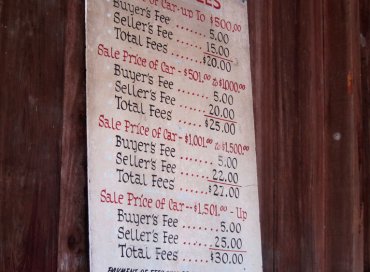 of Car-up To $500.00
Buyer's Fee ..... 5.00
Seller's Fee ..... 15.00
Total Fees ..... $20.00
Sale Price of Car - $501.00 to $1000.00
Buyer's Fee ..... 5.00
Seller's Fee ..... 20.00
Total Fees ..... $25.00
Sale Price of Car - $1,001.00 to $1,500.00
Buyer's Fee ..... 5.00
Seller's Fee ..... 22.00
Total Fees ..... $27.00
Sale Price of Car -- $1,501.00 - Up
Buyer's Fee ..... 5.00
Seller's Fee ..... 25.00
Total Fees ..... $30.00